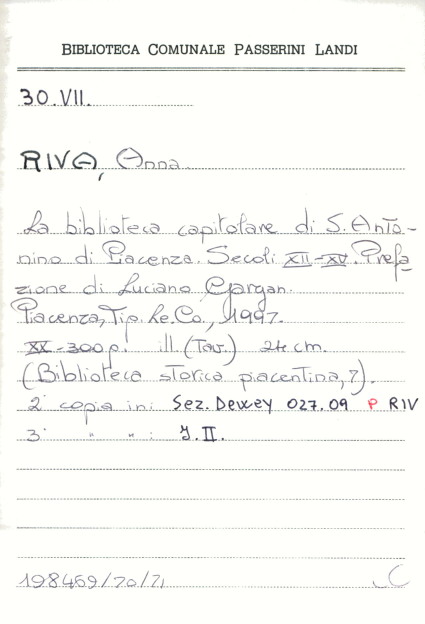 BIBLIOTECA COMUNALE PASSERINI LANDI
30.VII.
RIVA, Anna
La biblioteca capitolare di S. Anto-
nino di Piacenza. Secoli XII-XV. Prefa-
zione di Luciano Gargan.
Piacenza, Tip. Le.Co., 1997.
XX-300 p. ill. (Tav.) 24 cm.
(Biblioteca storica piacentina, 7).
2ª copia in: Sez. Dewey 027.09 P RIV
3ª " " : J.II.
198469/70/71